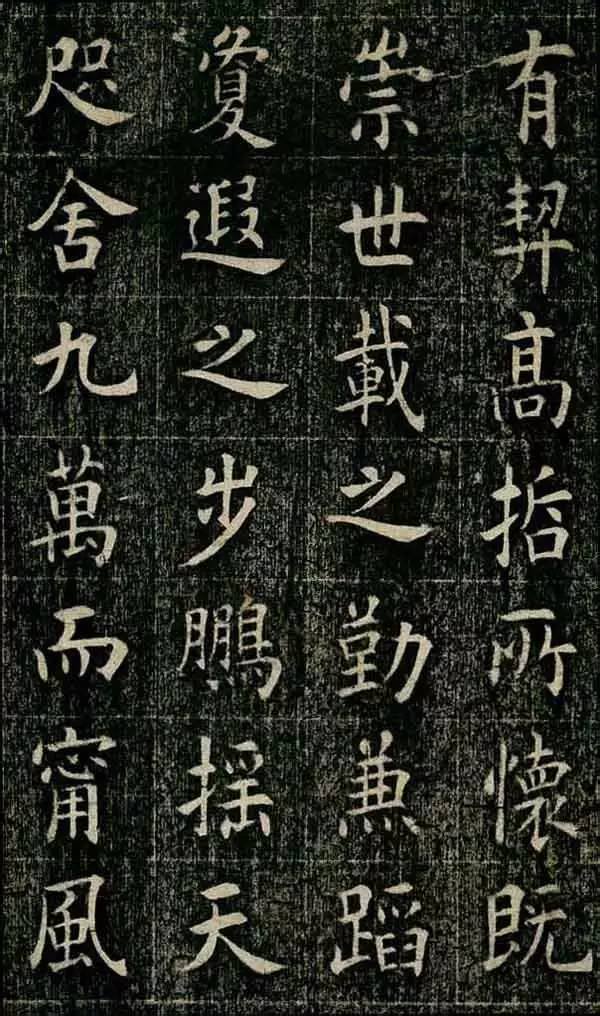 有契高指所懷既
崇世載之勤兼蹈
夐遐之步鵬搖天
咫舍九萬而甯風